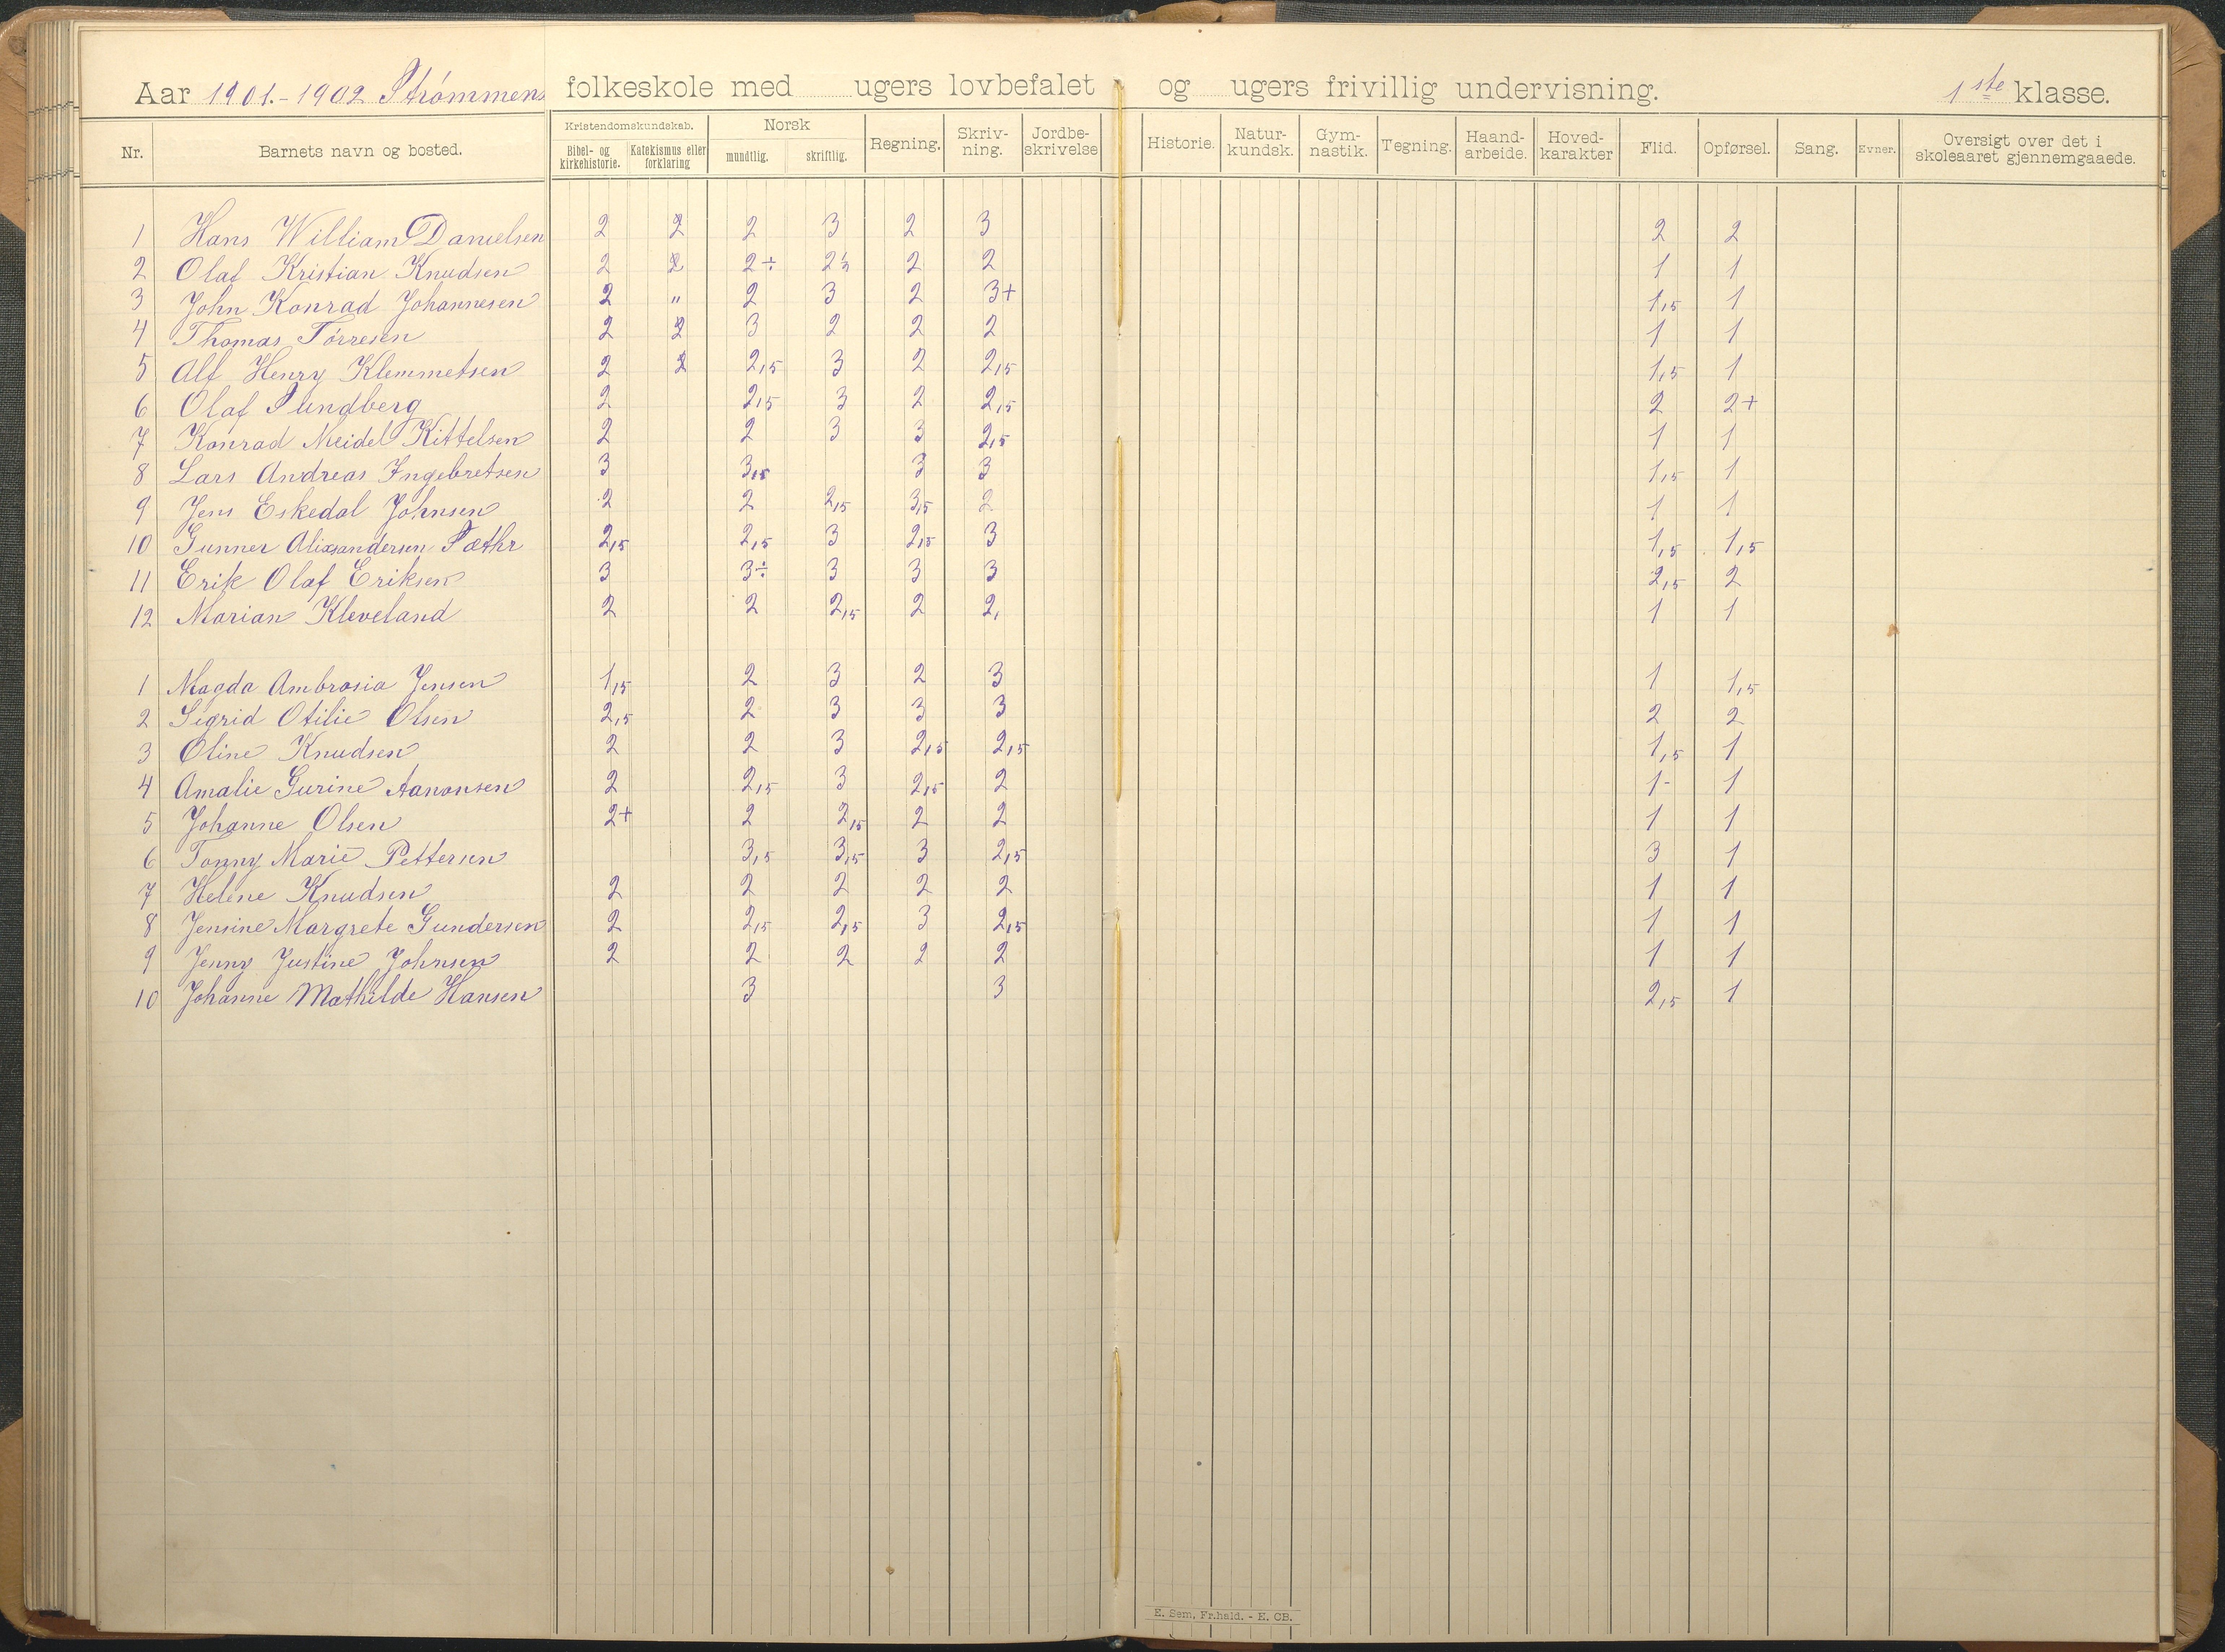 Aar 1901.-1902 Strømmens folkeskole med ugers lovbefalet og ugers frivillig undervisning. 1ste klasse.
Nr. Barnets navn og bosted. Kristendomskundskab. Bibel- og kirkehistorie. Katekismus eller forklaring Norsk mundtlig. skriftlig. Regning. Skriv-ning. Jordbe-skrivelse Historie. Natur-kundsk. Gym-nastik. Tegning. Haand-arbeide. Hoved-karakter Flid. Opførsel. Sang. Evner. Oversigt over det i skoleaaret gjennemgaaede.
1 Hans William Danielsen 2 2 2 3 2 3 2 2
2 Olaf Kristian Knudsen 2 2 2÷ 2½ 2 2 1 1
3 John Konrad Johannesen 2 " 2 3 2 3+ 1,5 1
4 Thomas Tørresen 2 2 3 2 2 2 1 1
5 Alf Henry Klemmetsen 2 2 2,5 3 2 2,5 1,5 1
6 Olaf Sundberg 2 2,5 3 2 2,5 2 2+
7 Konrad Meidel Kittelsen 2 2 3 3 2,5 1 1
8 Lars Andreas Ingebretsen 3 3,5 3 3 1,5 1
9 Jens Eskedal Johnsen 2 2 2,5 3,5 2 1 1
10 Gunner Alixsandersen Sæthr 2,5 2,5 3 2,5 3 1,5 1,5
11 Erik Olaf Eriksen 3 3÷ 3 3 3 2,5 2
12 Marian Kleveland 2 2 2,5 2 2, 1 1
1 Magda Ambrosia Jensen 1,5 2 3 2 3 1 1,5
2 Sigrid Otilie Olsen 2,5 2 3 3 3 2 2
3 Oline Knudsen 2 2 3 2,5 2,5 1,5 1
4 Amalie Gurine Aanonsen 2 2,5 3 2,5 2 1- 1
5 Johanne Olsen 2+ 2 2,5 2 2 1 1
6 Tonny Marie Pettersen 3,5 3,5 3 2,5 3 1
7 Helene Knudsen 2 2 2 2 2 1 1
8 Jensine Margrete Gundersen 2 2,5 2,5 3 2,5 1 1
9 Jenny Justine Johnsen 2 2 2 2 2 1 1
10 Johanne Mathilde Hansen 3 3 2,5 1
E. Sem, Fr.hald. - E. CB.